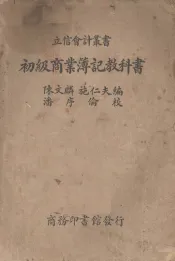 立信會計叢書
初級商業簿記教科書
陳文麟 施仁夫編
潘序倫校
商務印書館發行